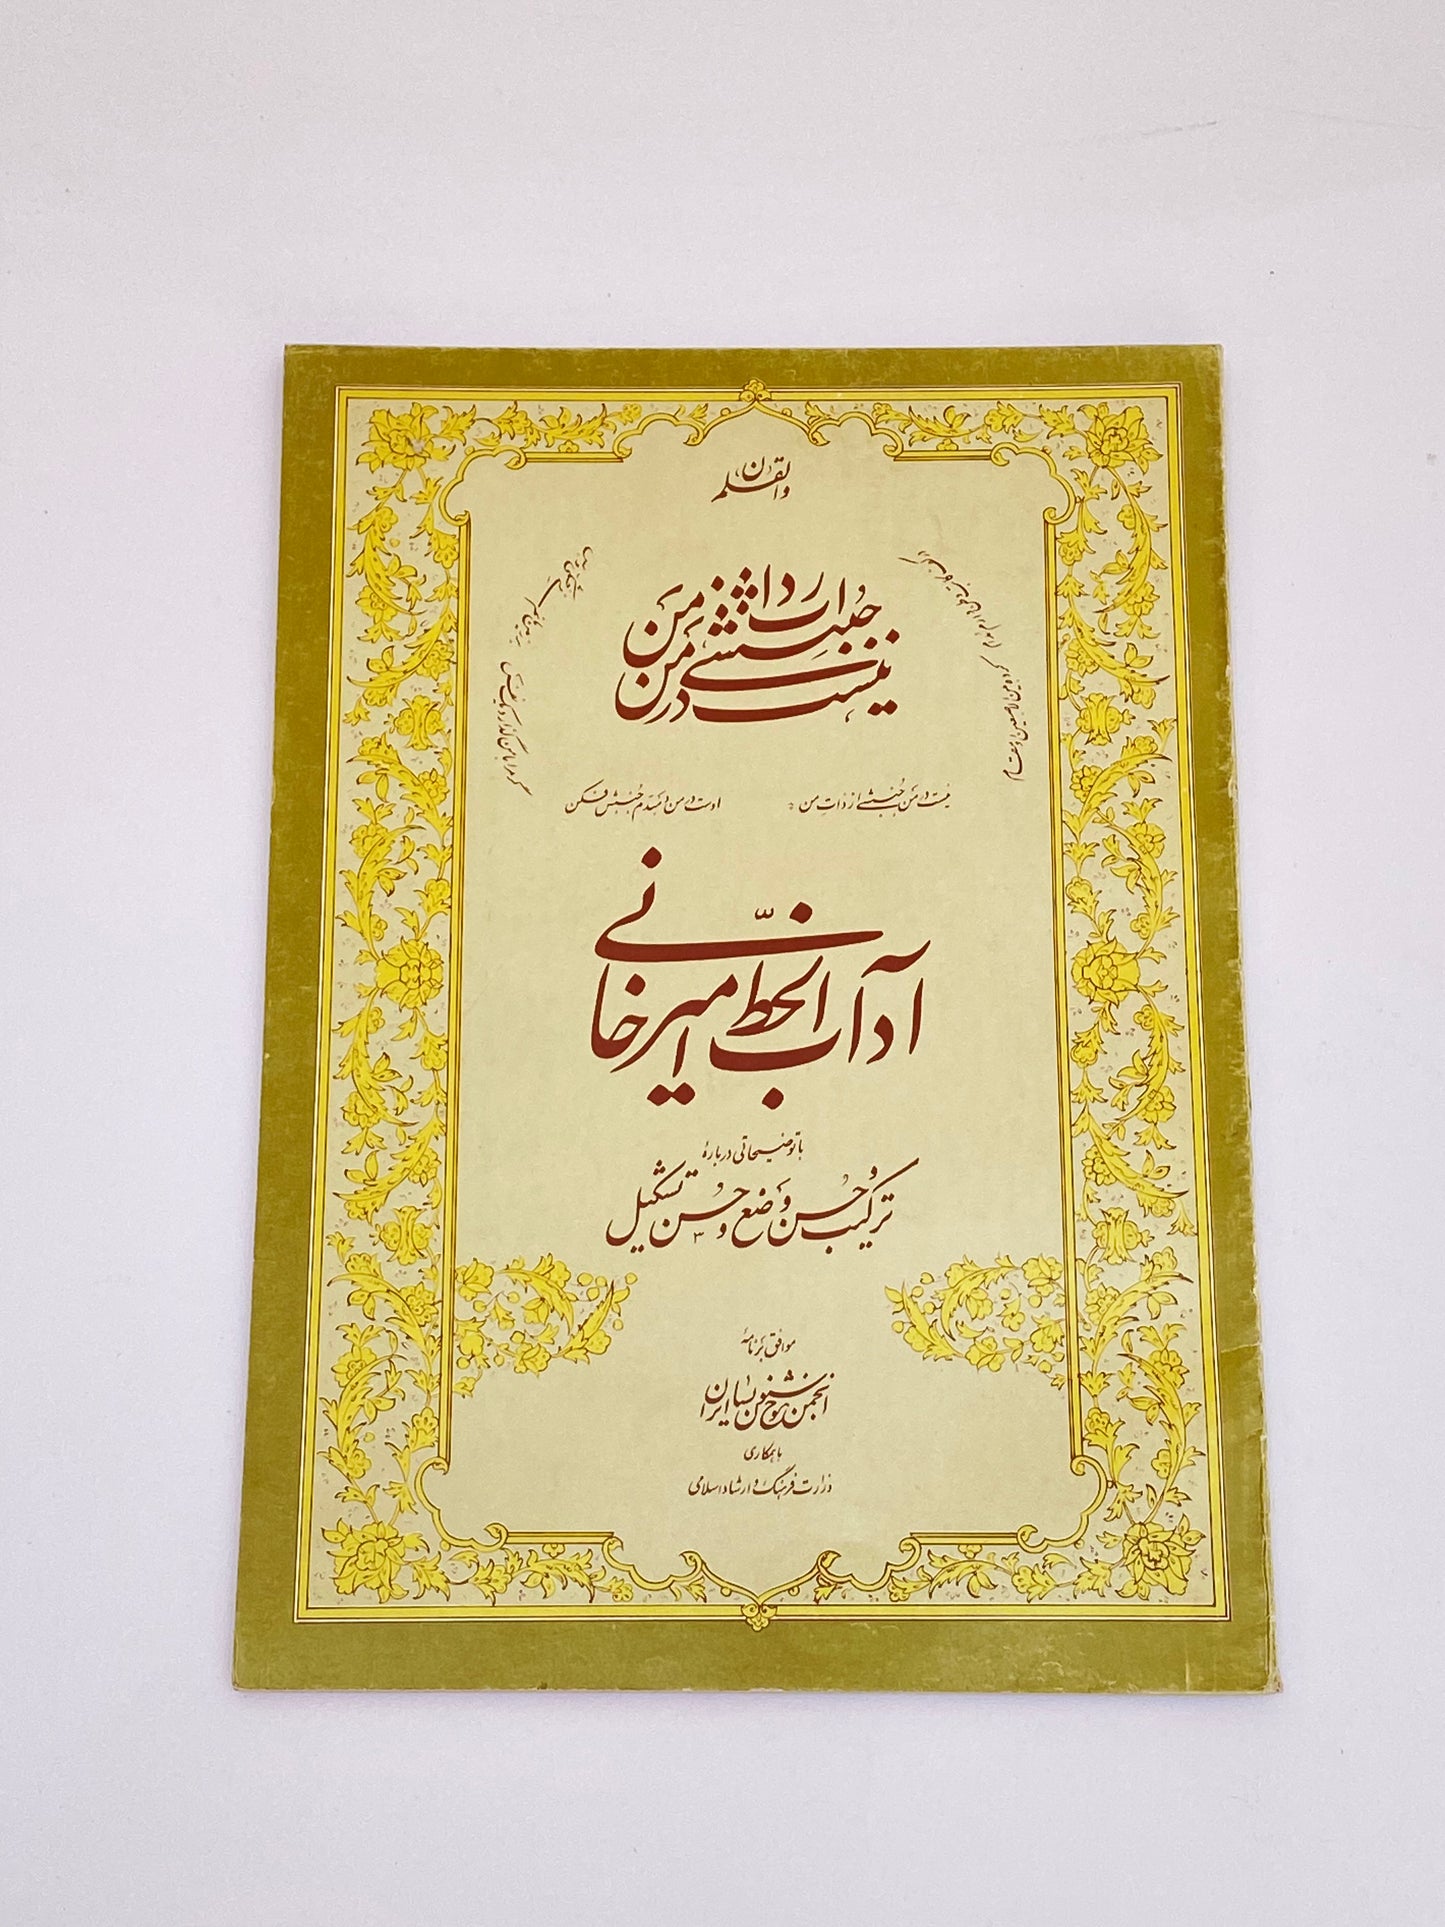 ن والقلم
نیست در من جنبشی از ذات من
نیست در من جنبشی از ذات من
اوست در من دمبدم جنبش فکن
آداب الخط امیرخانی
با توضیحاتی دربارهٔ
ترکیب و حسن وضع و حسن تشکیل
موافق برنامهٔ
انجمن خوشنویسان ایران
با همکاری
وزارت فرهنگ و ارشاد اسلامی